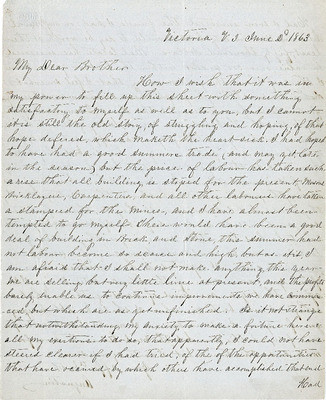 Victoria V. I. June 2d 1863
My Dear Brother
How I wish that it was in
my power to fill up this sheet with something
satisfactory to myself as well as to you, but I cannot
it is still the old story, of struggling and hoping, of that
hope defered, which maketh the heart sick. I had hoped
to have had a good summers trade, (and may yet late
in the season) but the price of labour has taken such
a rise that all building is stoped for the present. Masons
Bricklayers, Carpenters, and all other labourers have taken
a stampeed for the Mines, and I have almost been
tempted to go myself. There would have been a good
deal of building in Brick and Stone this summer had
not labour become so scarce and high, but as it is I
am afraid that I shall not make anything this year
We are selling but very little lime at present, and the profits
barely enable us to continue improvements we have commen
ced, but which are as yet unfinished. Is it not strange
that notwithstanding my anxiety to make a fortune here and
all my exertions to do so, that apparently, I could not have
steered clearer if I had tried, of the opportunities
that have occured, by which others have accomplished that end
Had